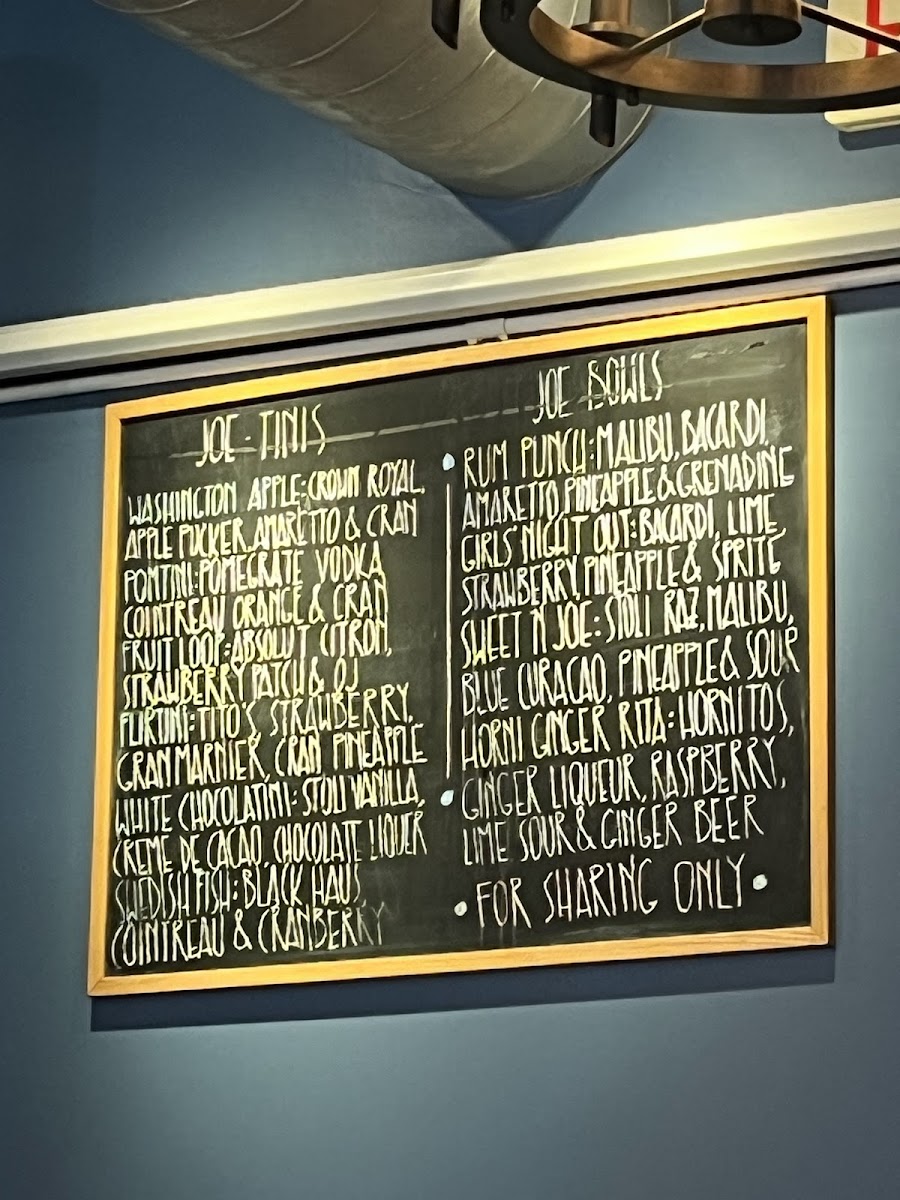 JOE-TINIS
WASHINGTON APPLE: CROWN ROYAL,
APPLE PUCKER, AMARETTO & CRAN
POMTINI: POMEGRATE VODKA
COINTREAU ORANGE & CRAN
FRUIT LOOP: ABSOLUT CITRON,
STRAWBERRY PATCH & OJ
FLIRTINI: TITO'S, STRAWBERRY,
GRAN MARNIER, CRAN PINEAPPLE
WHITE CHOCOLATINI: STOLI VANILLA,
CREME DE CACAO, CHOCOLATE LIQUER
SWEDISH FISH: BLACK HAUS,
COINTREAU & CRANBERRY
JOE BOWLS
RUM PUNCH: MALIBU, BACARDI,
AMARETTO, PINEAPPLE & GRENADINE
GIRLS' NIGHT OUT: BACARDI, LIME,
STRAWBERRY, PINEAPPLE & SPRITE
SWEET N JOE: STOLI RAZ, MALIBU,
BLUE CURACAO, PINEAPPLE & SOUR
HORNI GINGER RITA: HORNITOS,
GINGER LIQUEUR, RASPBERRY,
LIME SOUR & GINGER BEER
• FOR SHARING ONLY •